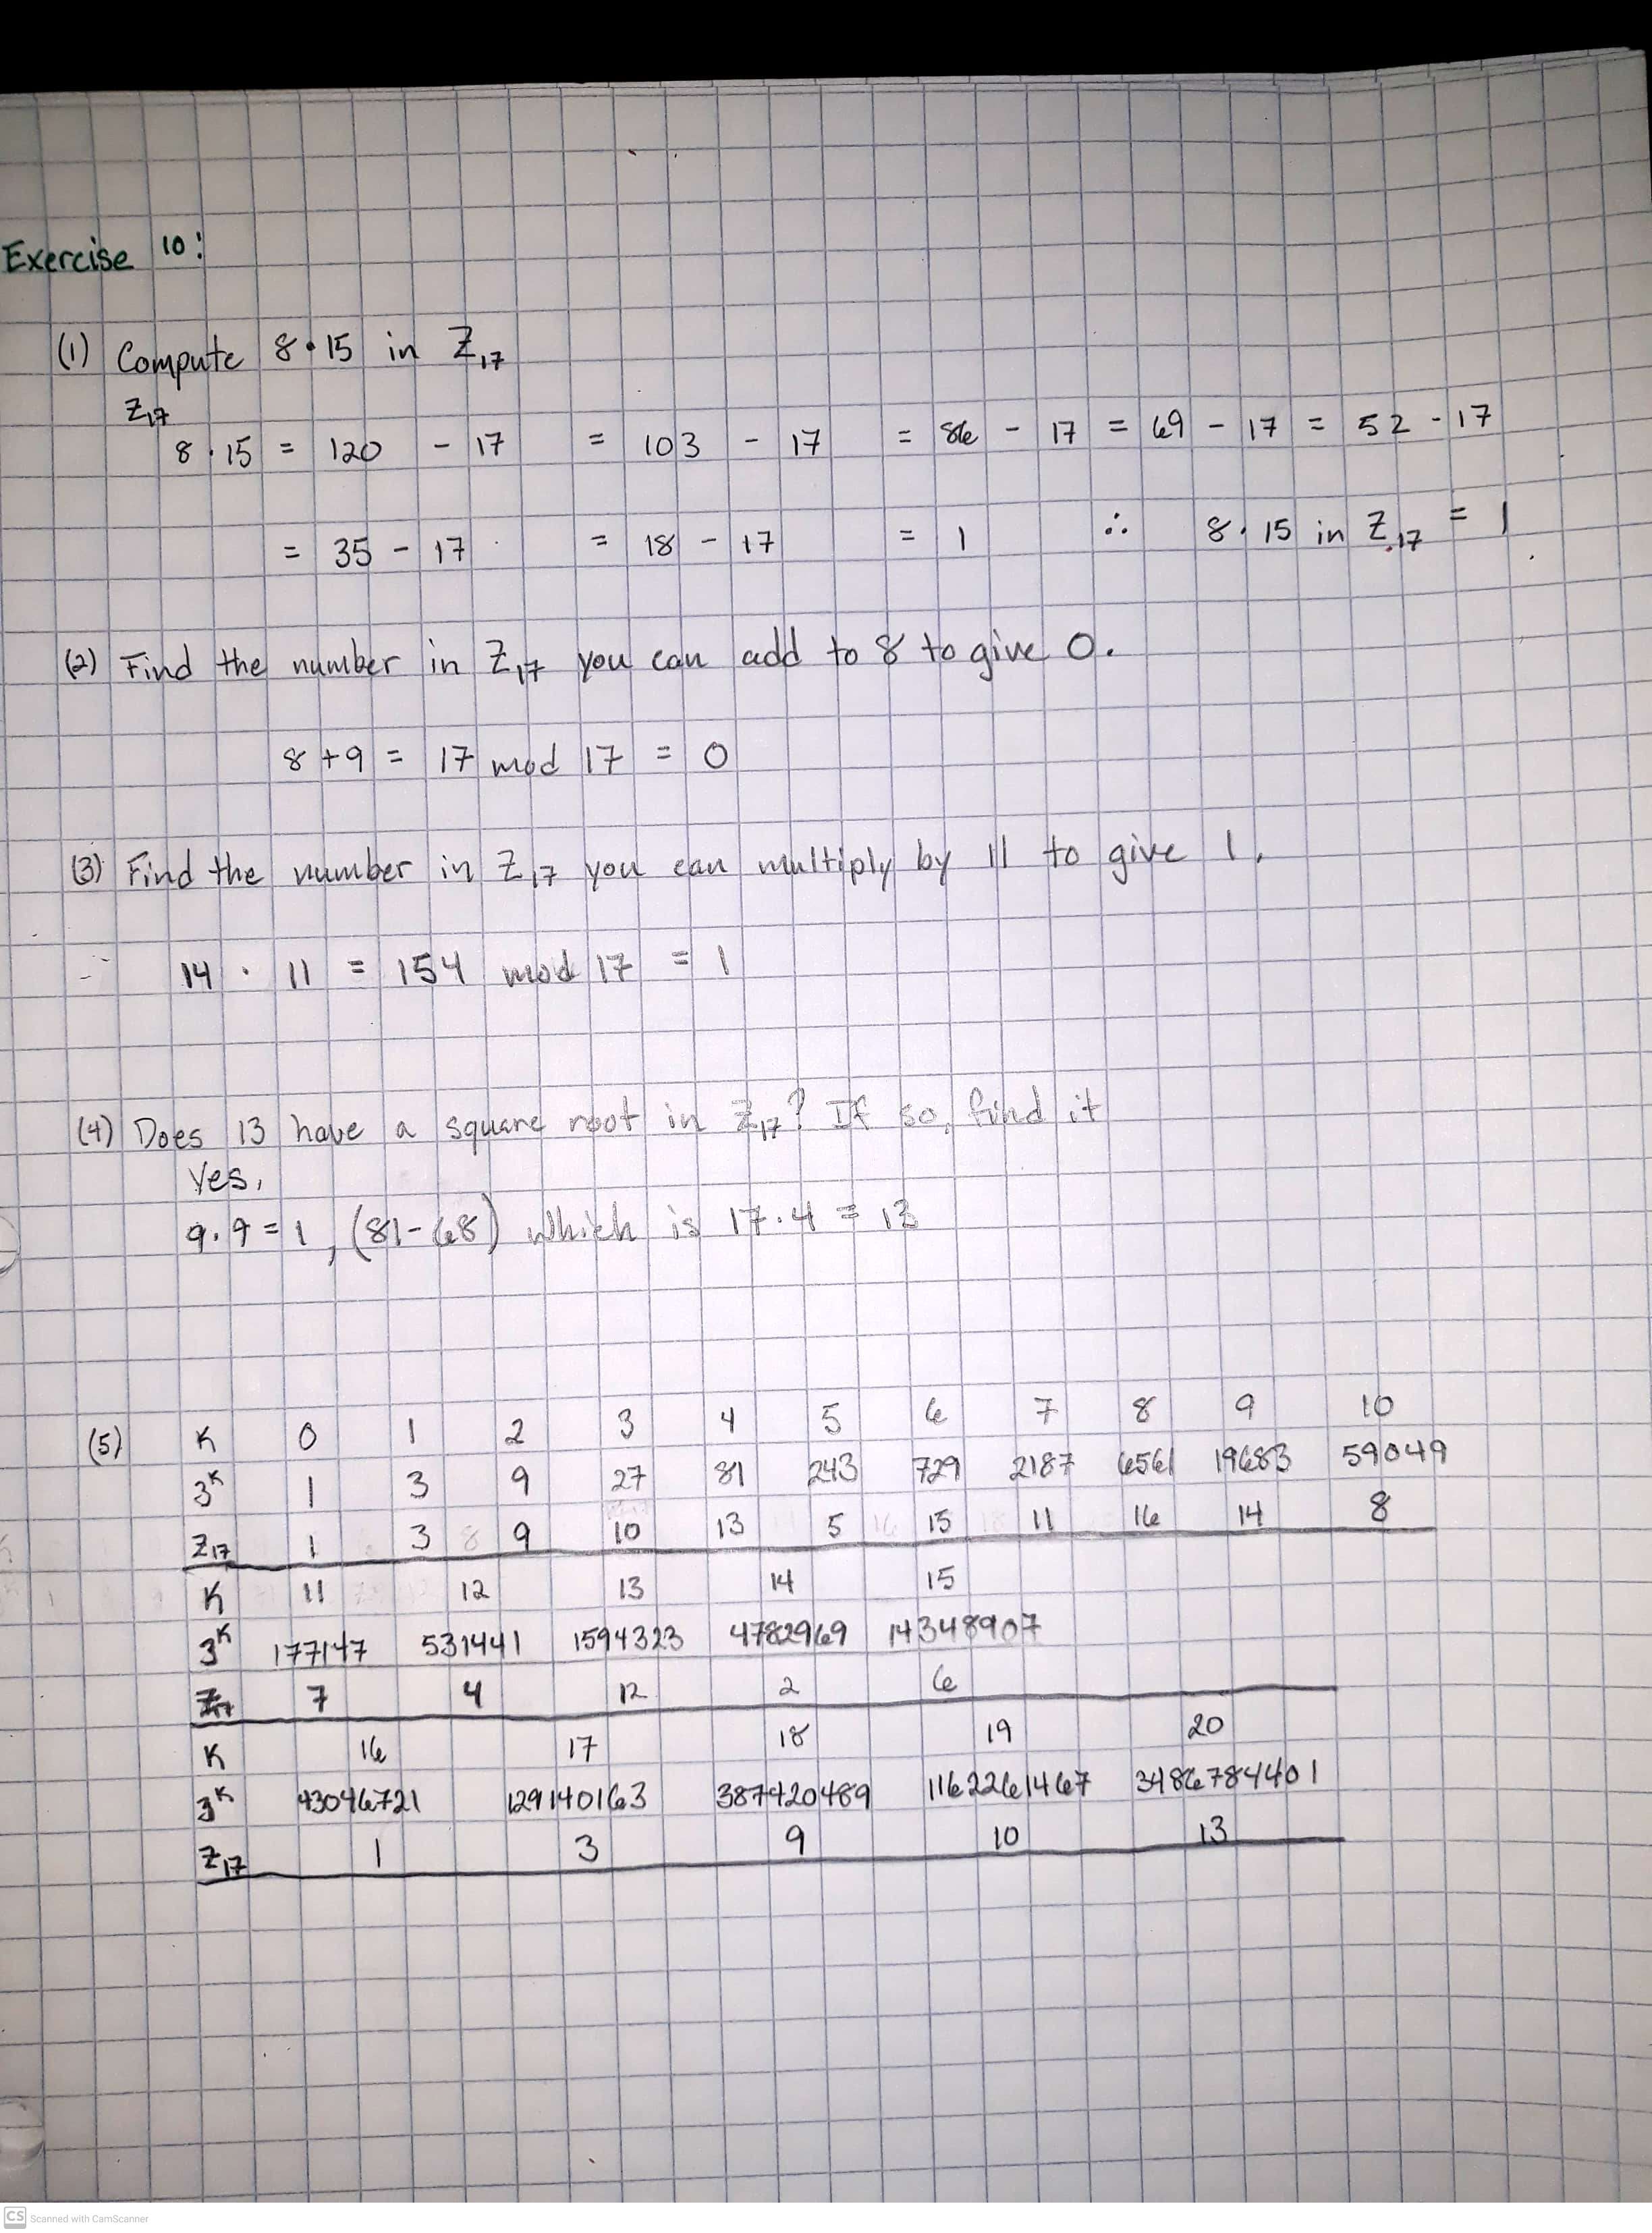 Exercise 10:
(1) Compute 8·15 in Z17
Z17
8·15 = 120 - 17 = 103 - 17 = 86 - 17 = 69 - 17 = 52 - 17
= 35 - 17 = 18 - 17 = 1 ∴ 8·15 in Z17 = 1
(2) Find the number in Z17 you can add to 8 to give 0.
8 + 9 = 17 mod 17 = 0
(3) Find the number in Z17 you can multiply by 11 to give 1.
14 · 11 = 154 mod 17 = 1
(4) Does 13 have a square root in Z17? If so, find it
Yes,
9·9 = 1, (81-68) which is 17·4 = 13
(5) K 0 1 2 3 4 5 6 7 8 9 10
3^K 1 3 9 27 81 243 729 2187 6561 19683 59049
Z17 1 3 9 10 13 5 15 11 16 14 8
K 11 12 13 14 15
3^K 177147 531441 1594323 4782969 14348907
Z17 7 4 12 2 6
K 16 17 18 19 20
3^K 43046721 129140163 387420489 1162261467 3486784401
Z17 1 3 9 10 13
CS Scanned with CamScanner